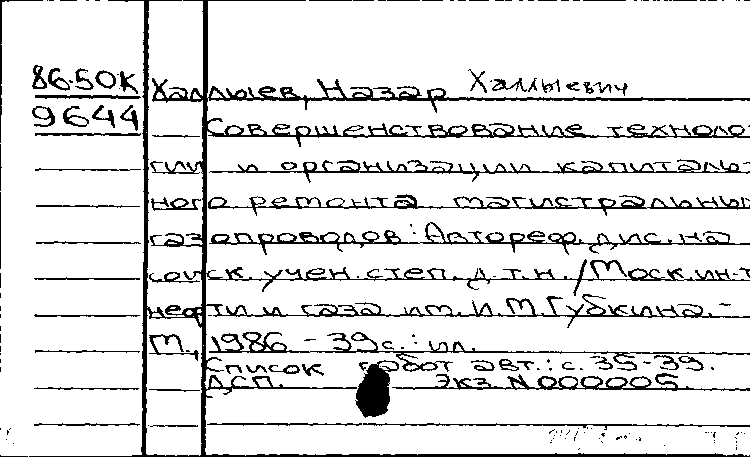 86-50К Халлыев, Назар Халлыевич
9644 Совершенствование техноло
гии и организации капиталь
ного ремонта магистральны
газопроводов: Автореф. дис. на
соиск. учен. степ. д.т.н. / Моск. ин-т
нефти и газа им. И.М. Губкина. -
М., 1986 - 39 с.: ил.
Список работ авт.: с. 35-39.
ДСП. Экз. N 000005.